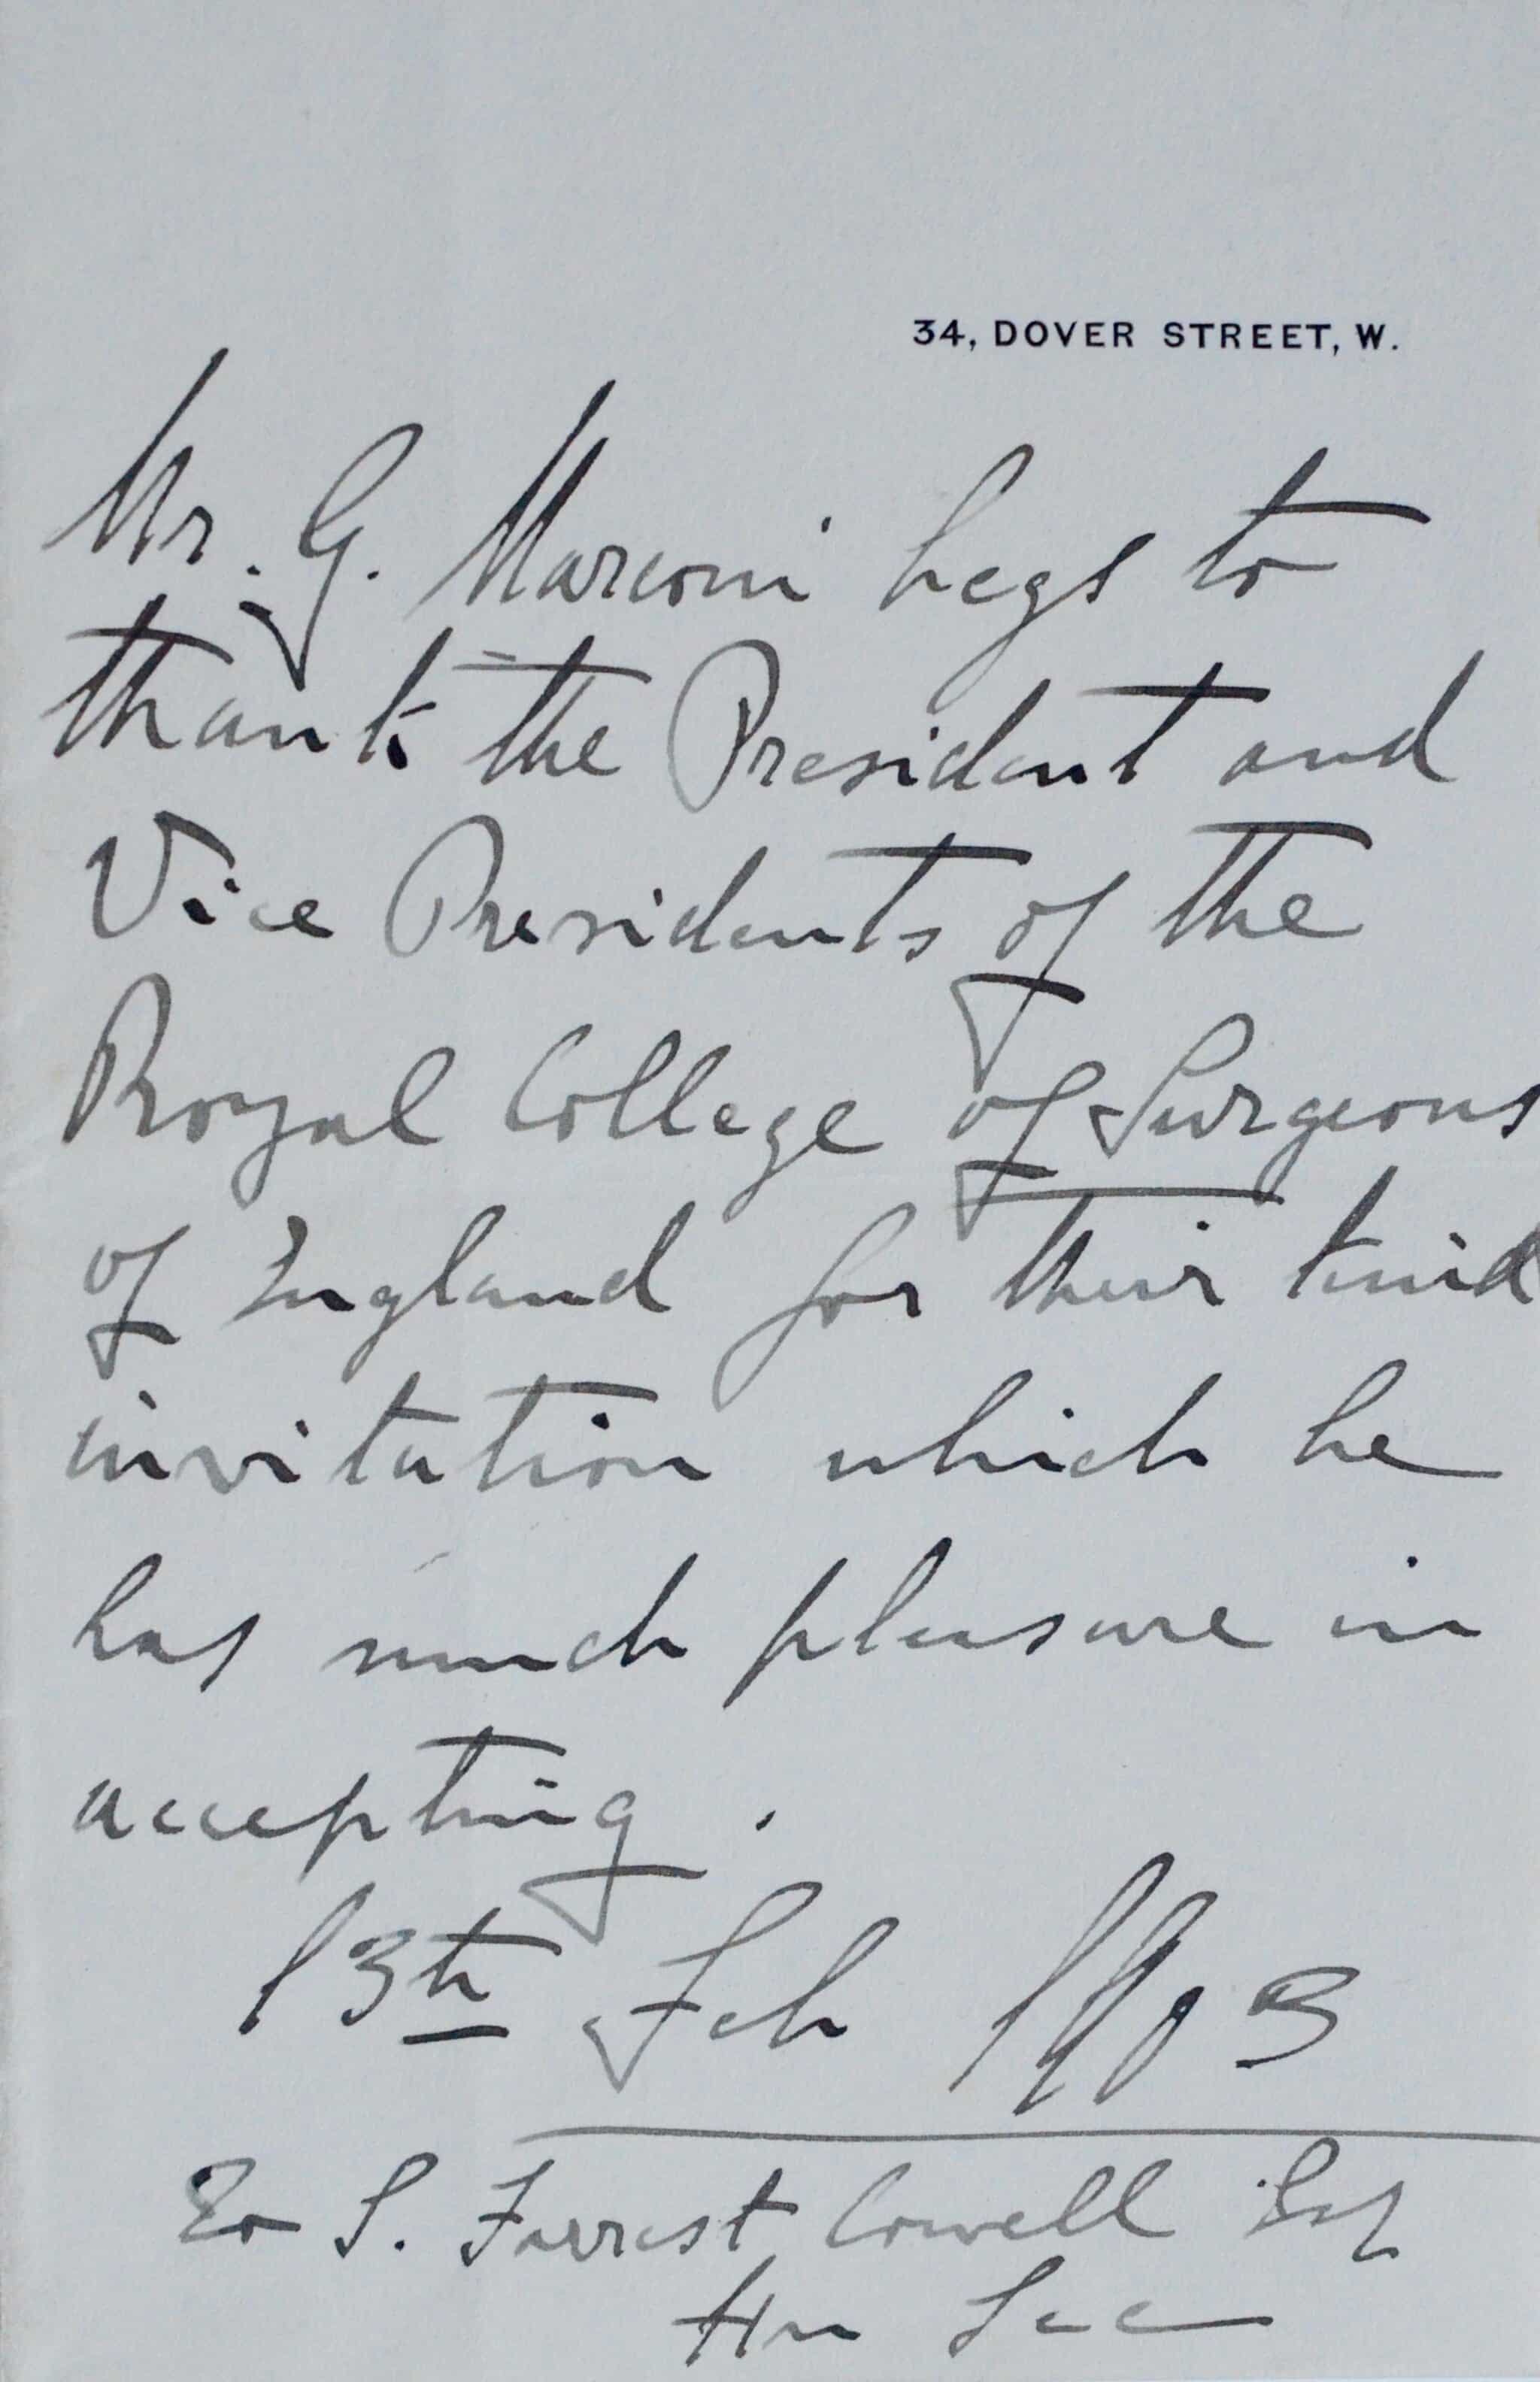 34, DOVER STREET, W.
Mr. G. Marconi begs to
thank the President and
Vice Presidents of the
Royal College of Surgeons
of England for their kind
invitation which he
has much pleasure in
accepting.
13th Feb 1903
To S. Forrest Cowell Esq
Hn Sec